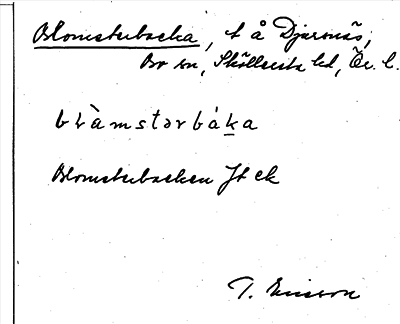 Blomsterbacka, t å Djursnäs,
Bo sn, Sköllersta hd, Ör. l.
blàmstərbáka
Blomsterbacken Jt ek
T. Ericsson